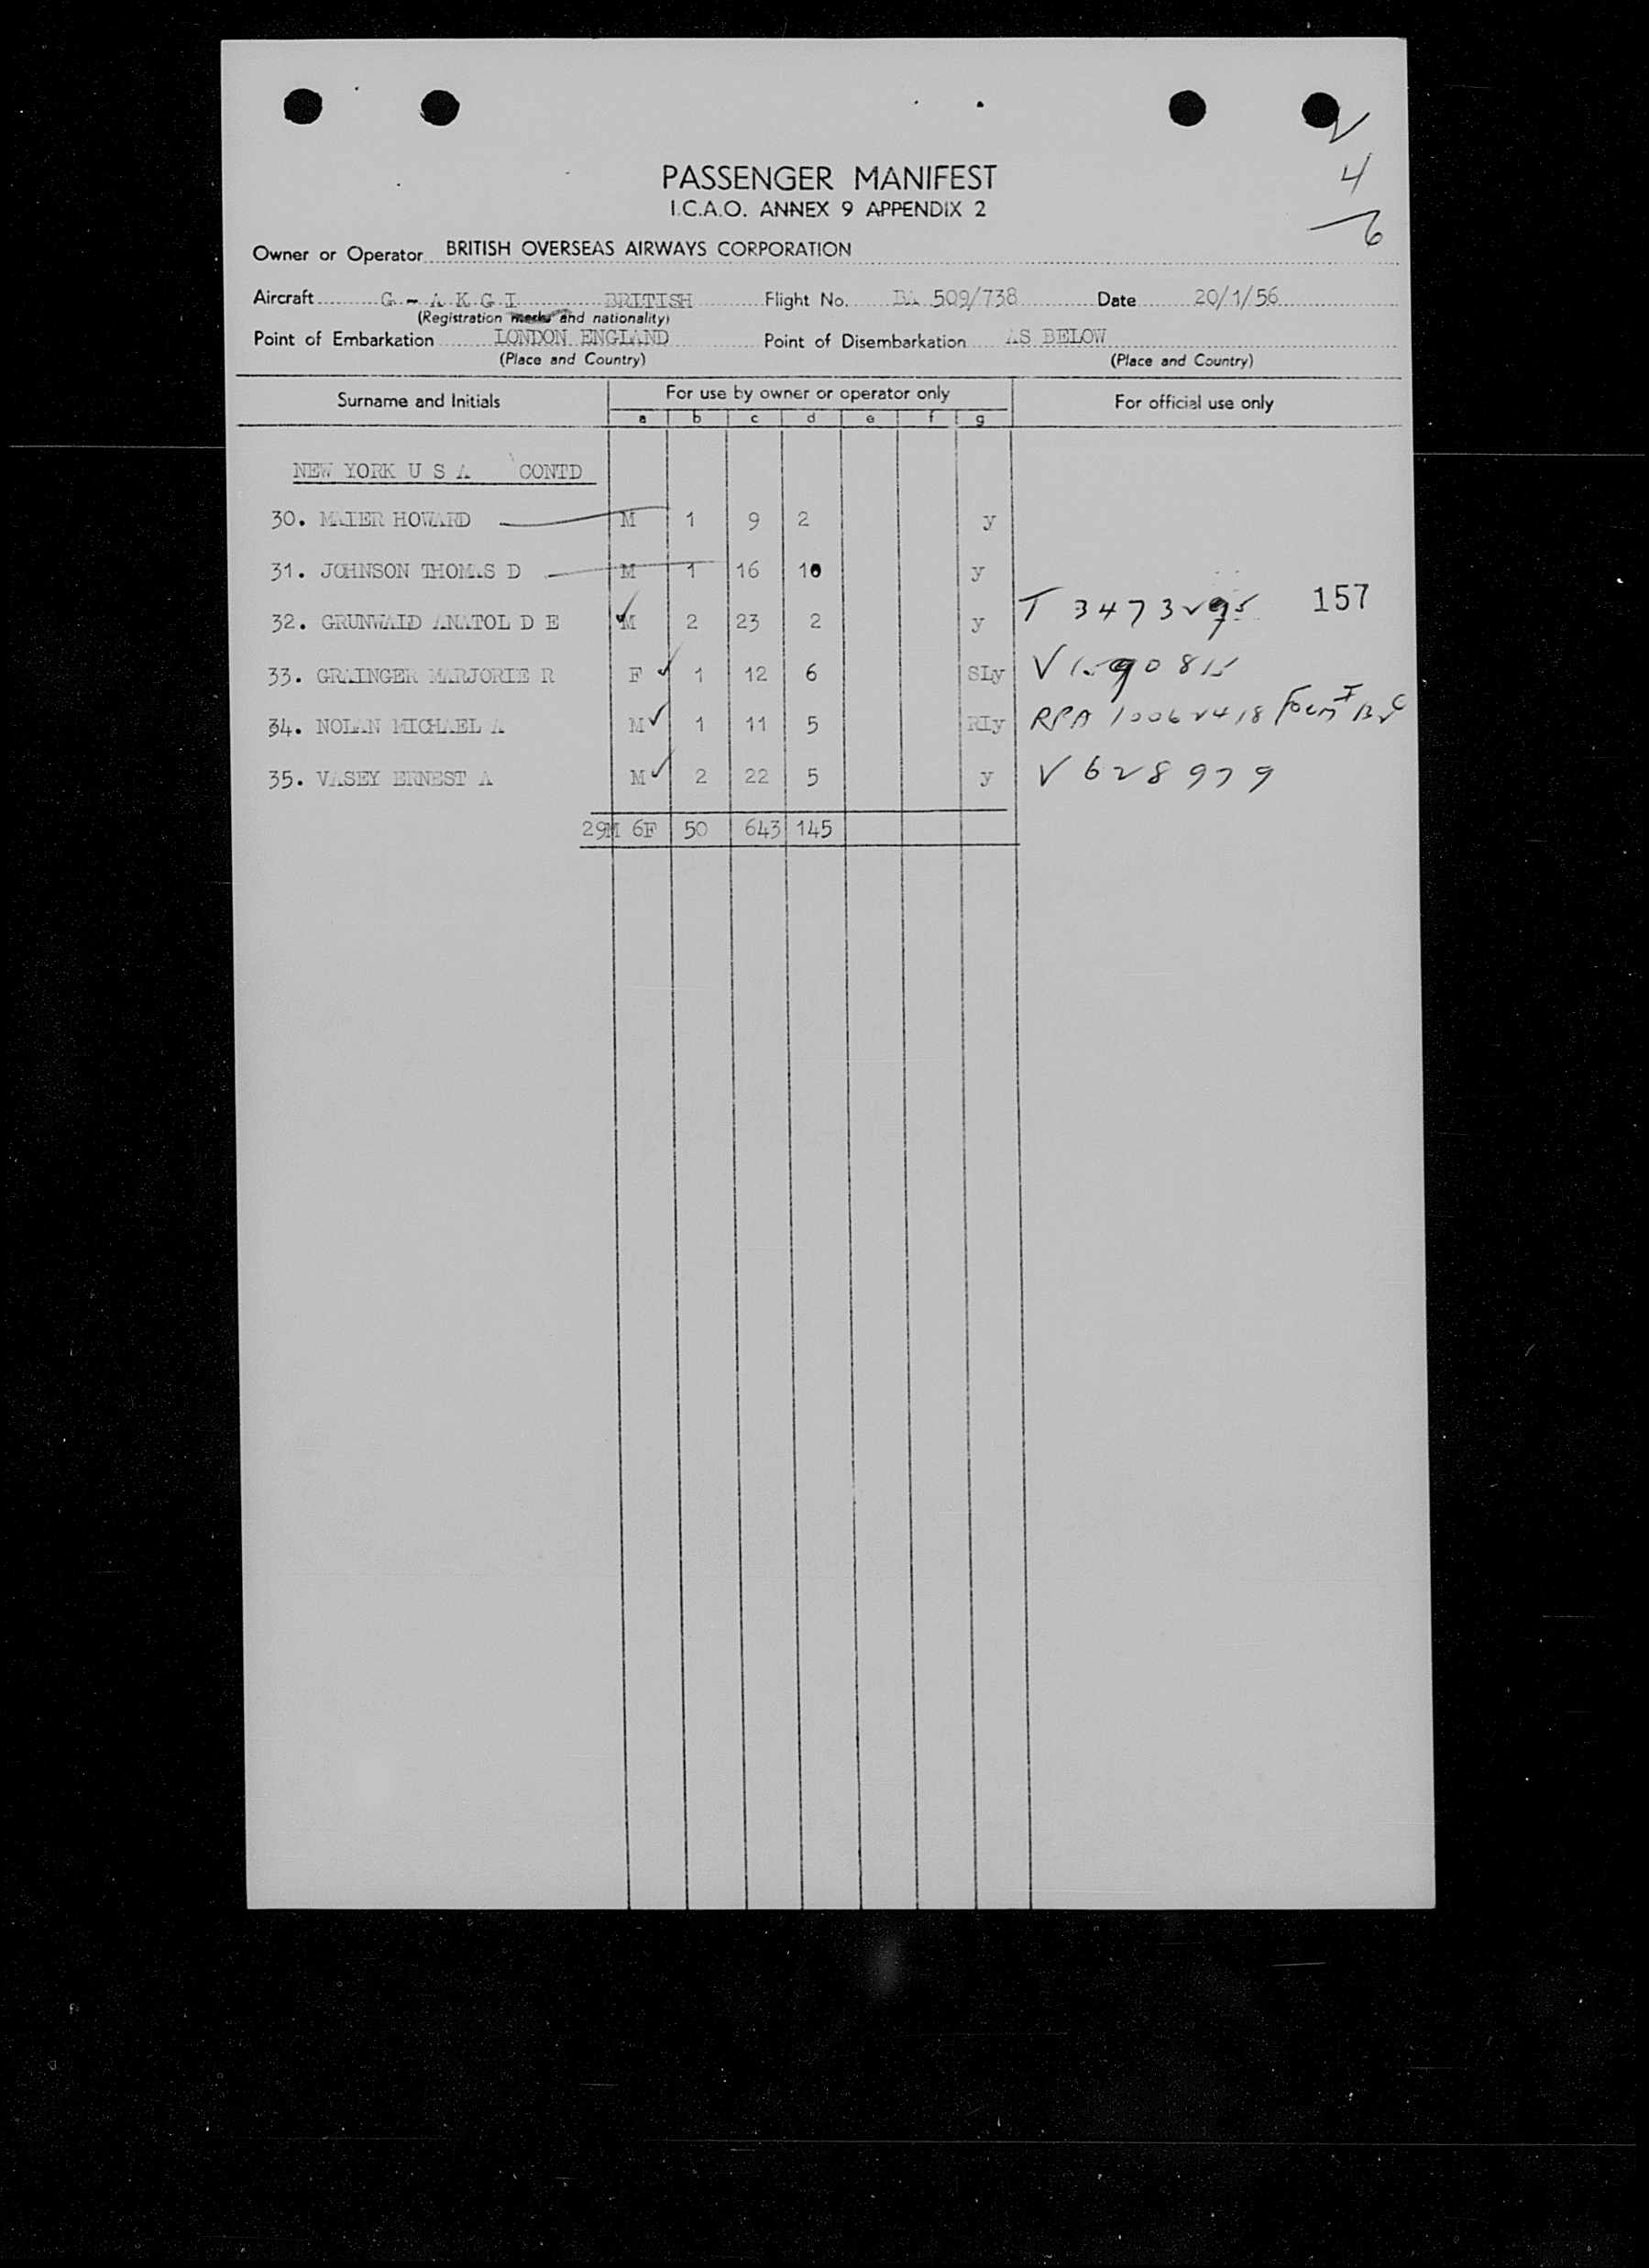 4
6
PASSENGER MANIFEST
I.C.A.O. ANNEX 9 APPENDIX 2
Owner or Operator BRITISH OVERSEAS AIRWAYS CORPORATION
Aircraft G - A K G I BRITISH Flight No. BA 509/738 Date 20/1/56
(Registration marks and nationality)
Point of Embarkation LONDON ENGLAND Point of Disembarkation AS BELOW
(Place and Country) (Place and Country)
Surname and Initials For use by owner or operator only For official use only
a b c d e f g
NEW YORK U S A CONTD
30. MAIER HOWARD M 1 9 2 y
31. JOHNSON THOMAS D M 1 16 10 y
157
32. GRUNWALD ANATOL D E M 2 23 2 y T 3473295
33. GRAINGER MARJORIE R F 1 12 6 SLy
34. NOLAN MICHAEL A M 1 11 5 RIy RPA 10062418 Form I
35. VASEY ERNEST A M 2 22 5 y V 628979
29M 6F 50 643 145